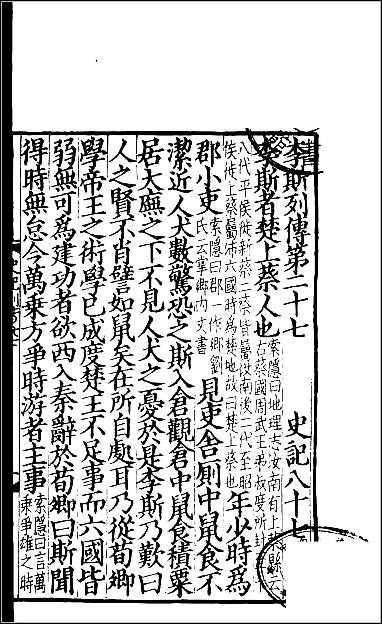 李斯列傳第二十七 史記八十七
李斯者楚上蔡人也
索隱曰地理志汝南有上蔡縣云
古蔡國周武王弟叔度所封
八代平侯徙新蔡二蔡皆屬汝南後二代至昭
侯徙下蔡屬沛六國時爲楚地故曰楚上蔡也
年少時爲
郡小吏
索隱曰郡一作鄉劉
氏云掌鄉內文書
見吏舍厠中鼠食不
潔近人犬數驚恐之斯入倉觀倉中鼠食積粟
居大廡之下不見人犬之憂於是李斯乃歎曰
人之賢不肖譬如鼠矣在所自處耳乃從荀卿
學帝王之術學已成度楚王不足事而六國皆
弱無可爲建功者欲西入秦辭於荀卿曰斯聞
得時無怠今萬乘方爭時游者主事
索隱曰言萬
乘爭雄之時